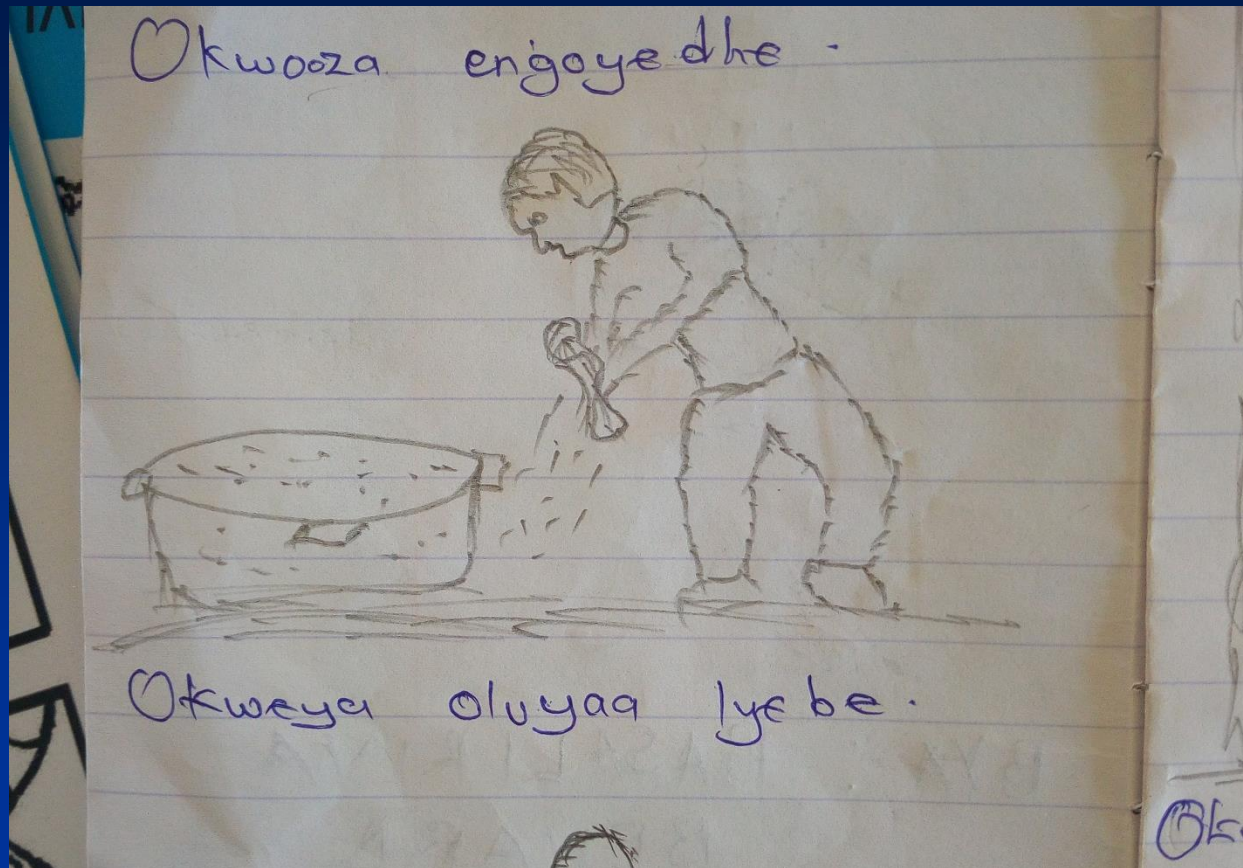 Okwooza engoyedhe.
Okweya oluyaa lyebe.